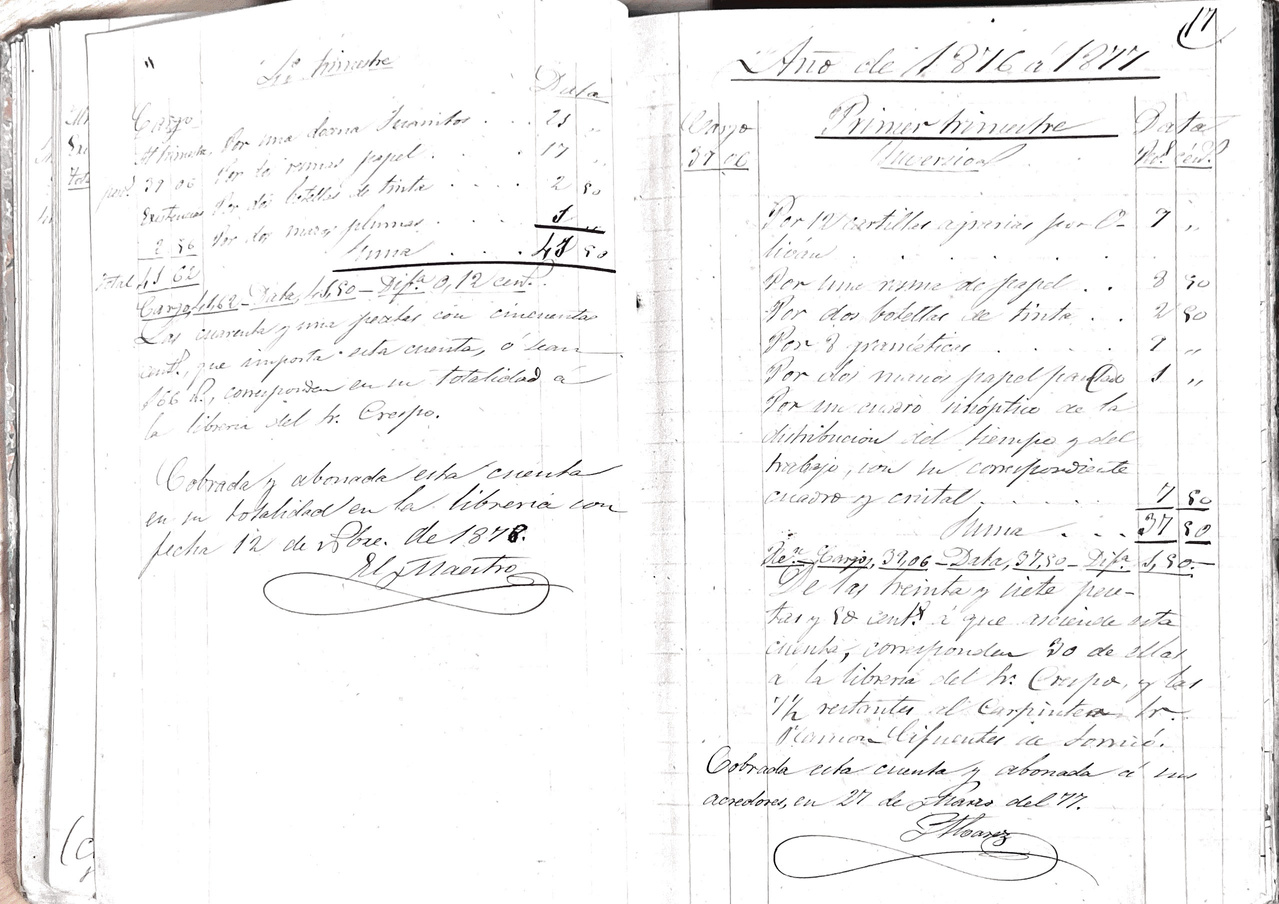 "
4º trimestre
Data
Cargo
Por una docena Juanitos . . . 21 "
Al trimestre
Por dos resmas papel . . . 17 "
37 06
Por dos botellas de tinta . . . 2 50
Existencias
Por dos manos plumas 1 "
2 56
Suma . . . . 41 50
Total 41 62
Cargo, 41,62 - Data, 41,50 - Difª 0,12 cent.
Las cuarenta y una pesetas con cincuenta
cents, que importa esta cuenta, ó sean
166 R., corresponden en su totalidad á
la librería del Sr. Crespo.
Cobrada y abonada esta cuenta
en su totalidad en la librería con
fecha 12 de de 1878.
El Maestro
17
Año de 1876 á 1877
Cargo
Primer trimestre
Data
37 06
Inversion
Pts. cént.
Por 12 cartillas agrarias por O-
liván . . . . . 7 "
Por una resma de papel . . 8 50
Por dos botellas de tinta . . 2 50
Por 8 gramáticas . . . . .
Por dos manos papel pautado 1 "
Por un cuadro sinóptico de la
distribucion del tiempo y del
trabajo, con su correspondiente
cuadro y cristal . . . . . 7 50
Suma . . . 37 50
Cargo, 37,06 - Data, 37,50 - Difª 1,50.-
De las treinta y siete pese-
tas y 50 cents. á que asciende esta
cuenta, corresponden 30 de ellas
á la librería del Sr. Crespo, y las
7½ restantes al Carpintero Sr.
Ramon Cifuentes de
Cobrada esta cuenta y abonada á sus
acredores, en 27 de Marzo del 77.
Alvarez